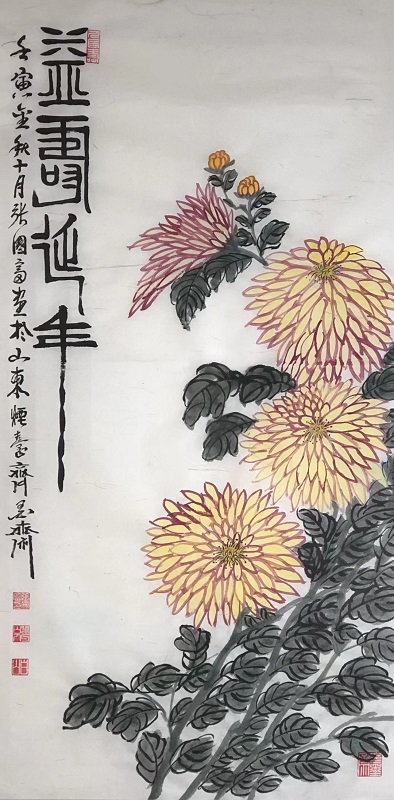 益壽延年
壬寅金秋十月張國富畫於山東煙臺齊墨齋